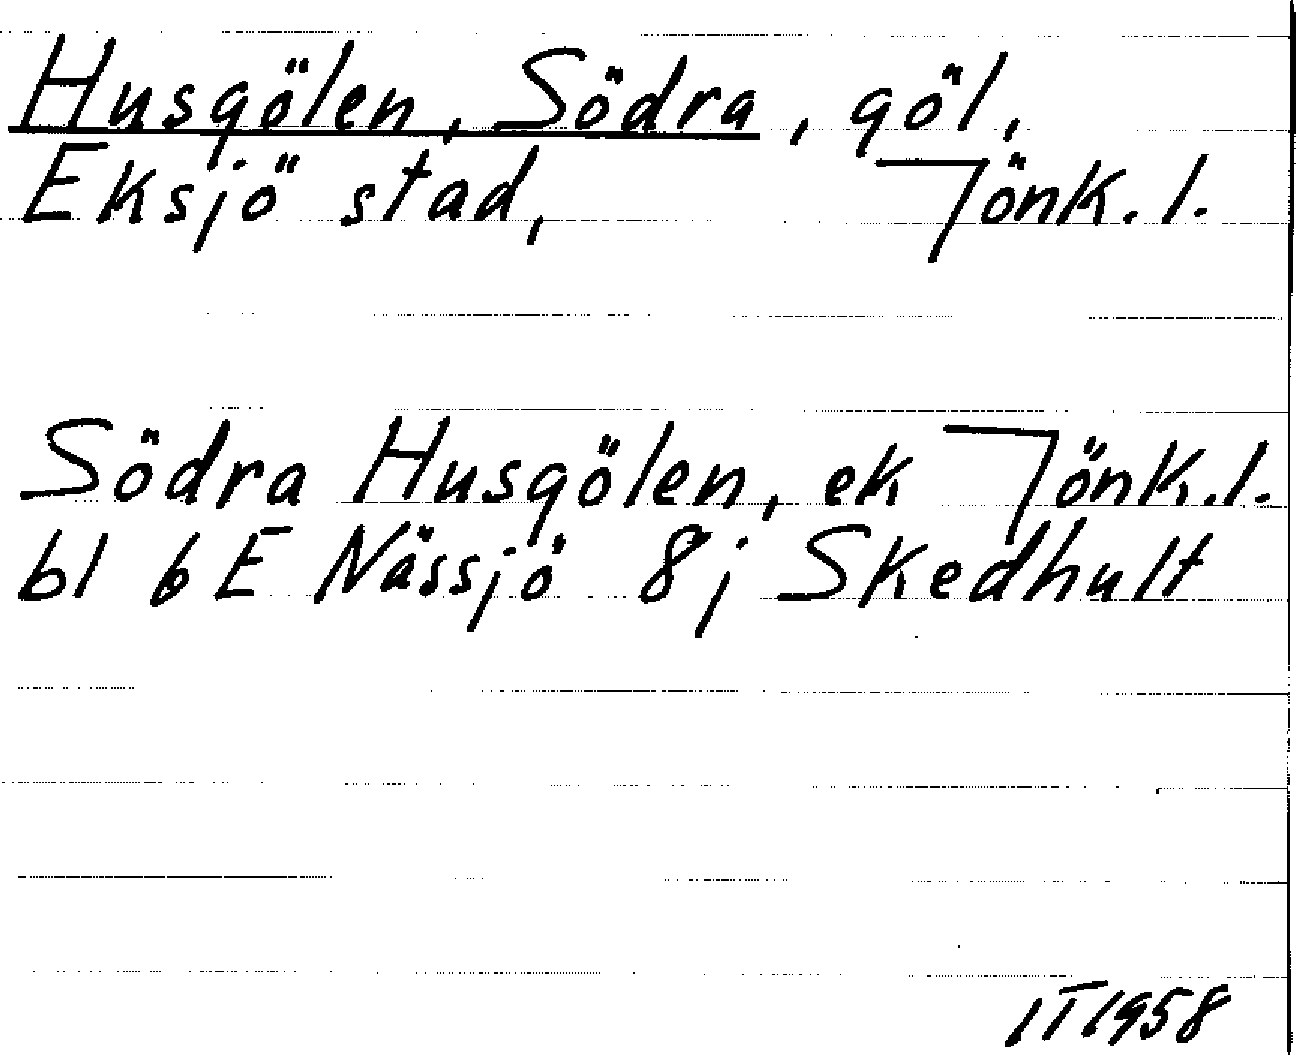 Husgölen, Södra, göl,
Eksjö stad, Jönk. l.
Södra Husgölen, ek Jönk. l.
bl 6 E Nässjö 8 j Skedhult
1T1958